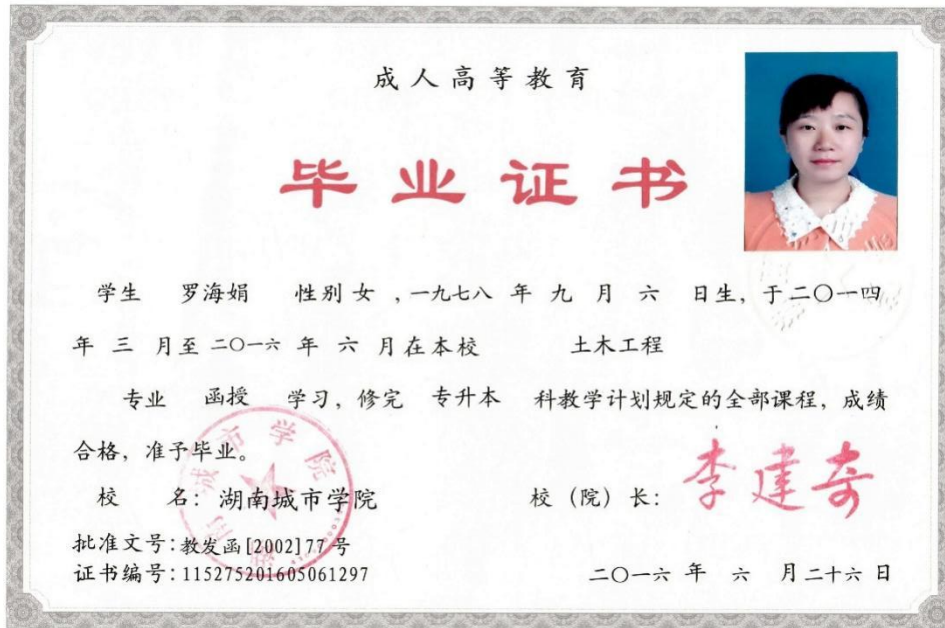 成人高等教育
毕业证书
学生 罗海娟 性别 女 ,一九七八 年 九 月 六 日生, 于二〇一四
年 三 月至 二〇一六 年 六 月在本校 土木工程
专业 函授 学习, 修完 专升本 科教学计划规定的全部课程, 成绩
合格, 准予毕业。
校 名: 湖南城市学院 校 (院) 长: 李建奇
批准文号:教发函[2002]77号
证书编号:115275201605061297 二〇一六 年 六 月二十六日